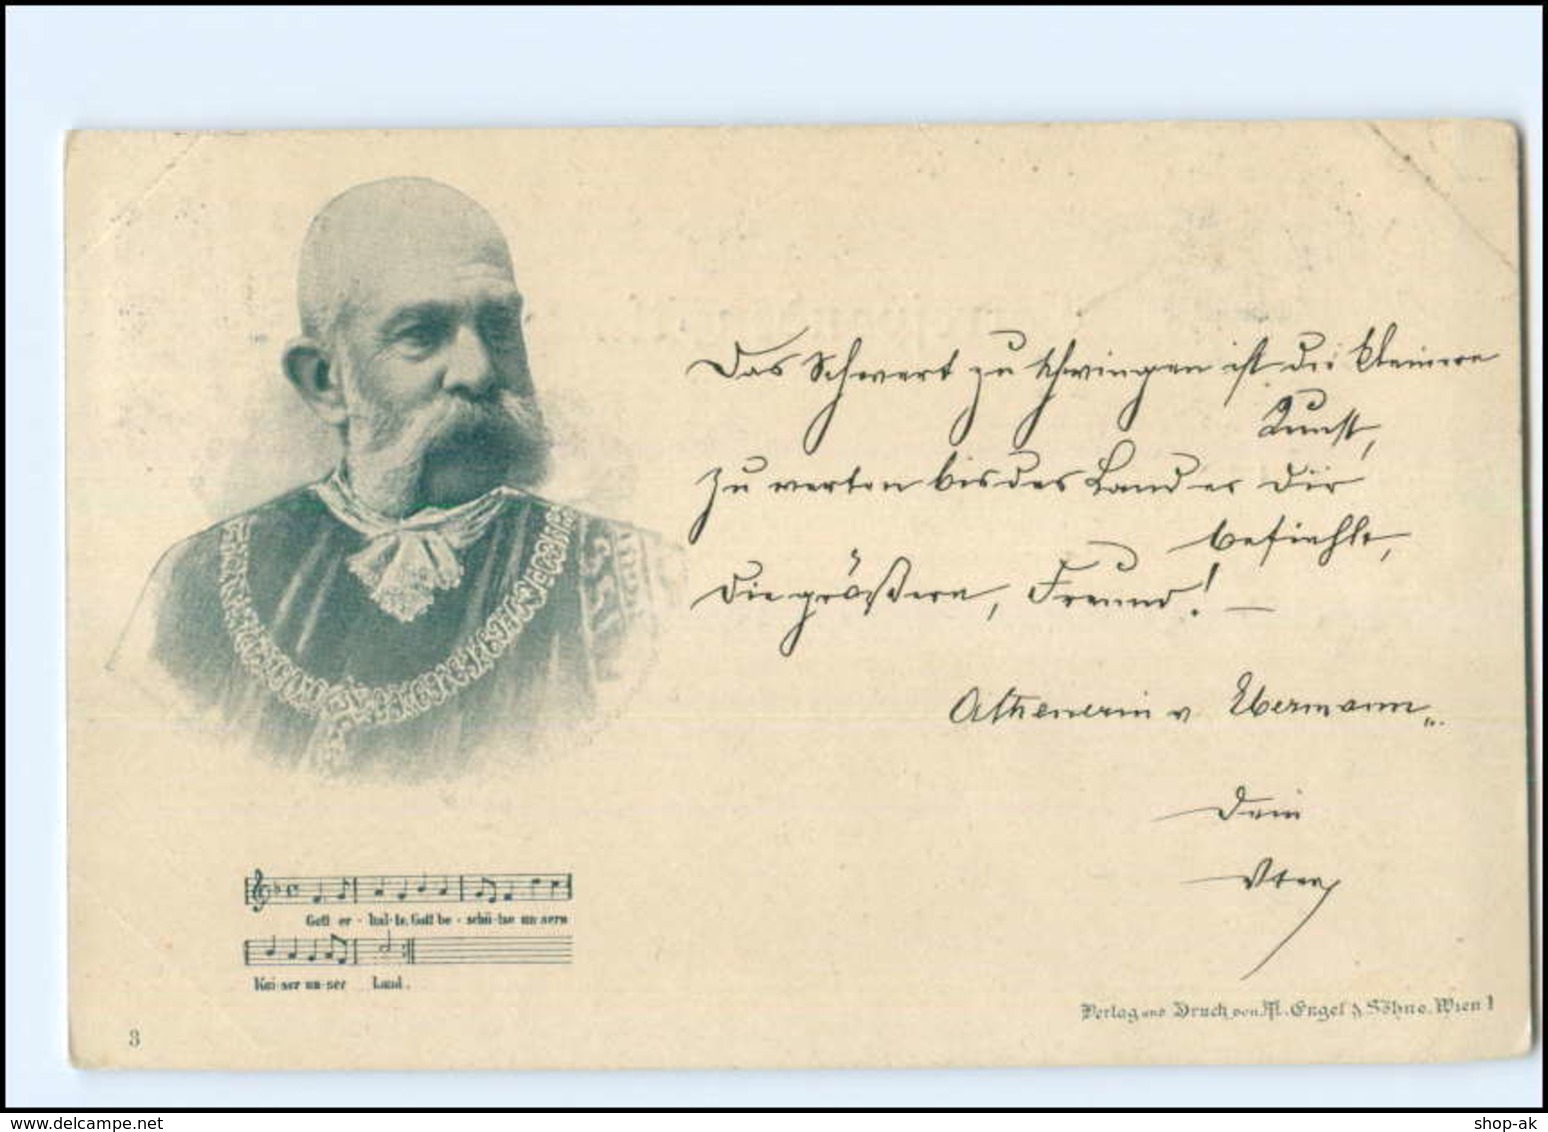 Das Schwert zu schwingen ist die kleinere
Kunst,
zu warten bis das Land es Dir
befiehlt,
die größere, Freund! —
Athenerin v Ebermann„
Dein
Gott er - hal-te, Gott be - schü-tze un-sern
Kai-ser un-ser Land.
Verlag und Druck von M. Engel & Söhne, Wien I
3
shop-ak